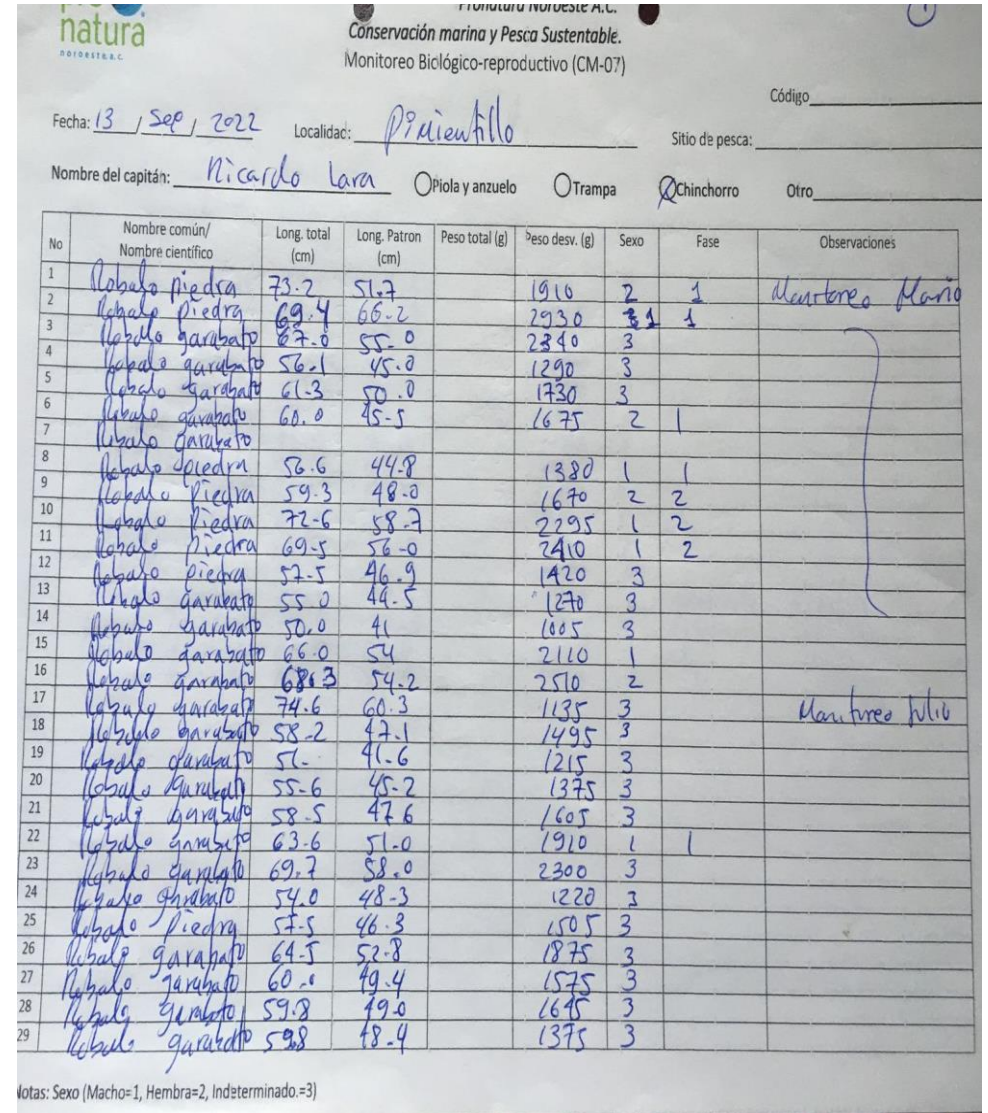 natura
noroeste a.c.
Pronatura Noroeste A.C.
Conservación marina y Pesca Sustentable.
Monitoreo Biológico-reproductivo (CM-07)
1
Código
Fecha: 13 / Sep / 2022 Localidad: Pimientillo Sitio de pesca:
Nombre del capitán: Ricardo Lara Piola y anzuelo Trampa Chinchorro Otro
No Nombre común/ Nombre científico Long. total (cm) Long. Patron (cm) Peso total (g) Peso desv. (g) Sexo Fase Observaciones
1 Robalo piedra 73.2 51.7 1910 2 1 Monitoreo
2 Robalo piedra 69.4 66-2 2930 1 1
3 Robalo garabato 67.0 55-0 2340 3
4 Robalo garabato 56.1 45.0 1290 3
5 Robalo garabato 61-3 50.0 1730 3
6 Robalo garabato 60.0 45-5 1675 2 1
7 Robalo garabato
8 Robalo piedra 56.6 44-8 1380 1 1
9 Robalo Piedra 59.3 48-0 1670 2 2
10 Robalo Piedra 72-6 58-7 2295 1 2
11 Robalo Piedra 69-5 56-0 2410 1 2
12 Robalo piedra 57-5 46.9 1420 3
13 Robalo garabato 55 0 44-5 1270 3
14 Robalo garabato 50.0 41 1005 3
15 Robalo garabato 66.0 54 2110 1
16 Robalo garabato 68.3 54-2 2510 2
17 Robalo garabato 74.6 60.3 1135 3 Monitoreo Julio
18 Robalo garabato 58-2 47.1 1495 3
19 Robalo garabato 51- 41-6 1215 3
20 Robalo garabato 55-6 45-2 1375 3
21 Robalo garabato 58-5 47 6 1605 3
22 Robalo garabato 63-6 51-0 1910 1 1
23 Robalo garabato 69.7 58.0 2300 3
24 Robalo garabato 54.0 48-3 1220 3
25 Robalo Piedra 57-5 46.3 1505 3
26 Robalo garabato 64-5 52-8 1875 3
27 Robalo garabato 60.0 49-4 1575 3
28 Robalo garabato 59.8 49 0 1645 3
29 Robalo garabato 598 48-4 1375 3
Notas: Sexo (Macho=1, Hembra=2, Indeterminado.=3)